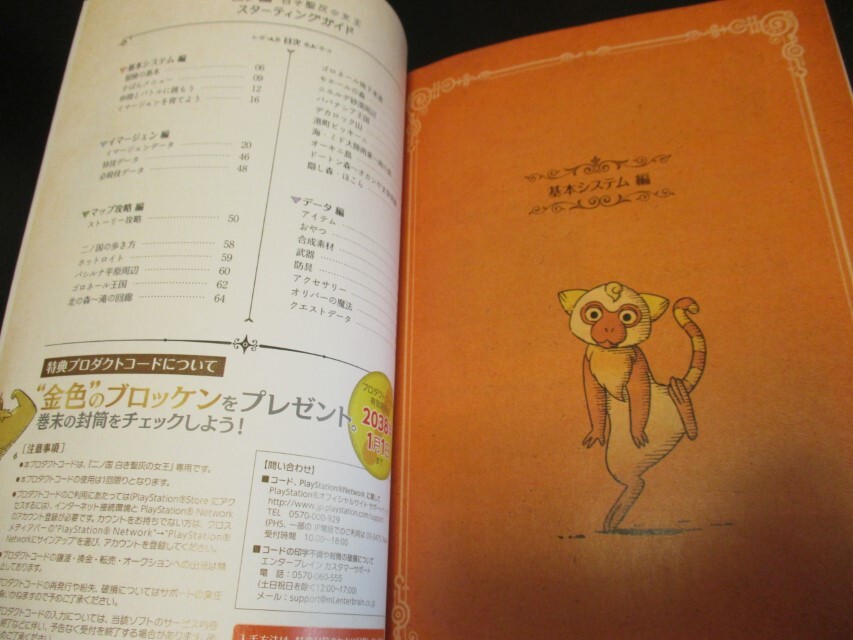 スターティングガイド
目次
▼基本システム 編
冒険の基本 06
かばんメニュー 09
仲間とバトルに挑もう 12
イマージェンを育てよう 16
▼イマージェン 編
イマージェンデータ 20
特技データ 46
必殺技データ 48
▼マップ攻略 編
ストーリー攻略 50
二ノ国の歩き方 58
ホットロイト 59
バシルナ平原周辺 60
ゴロネール王国 62
北の森~滝の回廊 64
ゴロネール地下水道
モネールの森
ニエルデ砂漠周辺
ババナシア王国
デカロック山
港町ビッキーニ
オーキニ島
隠し森・ほこら
▼データ 編
アイテム
おやつ
合成素材
武器
防具
アクセサリー
オリバーの魔法
クエストデータ
特典プロダクトコードについて
“金色”のブロッケンをプレゼント。
巻末の封筒をチェックしよう!
2038
1月1
まで
6
[注意事項]
●本プロダクトコードは、『二ノ国 白き聖灰の女王』専用です。
●本プロダクトコードの使用は1回限りとなります。
●プロダクトコードのご利用にあたっては(PlayStation®Store にアク
セスするには、インターネット接続環境と PlayStation® Network
のアカウント登録が必要です。カウントをお持ちでない方は、クロス
メディアバーの"PlayStation® Network"→"PlayStation®
Networkにサインアップ"を選び、アカウントを登録してください。
プロダクトコードの譲渡・換金・転売・オークションへの出品は禁
止しております。
プロダクトコードの再発行や紛失、破損についてはサポートの責任
負いかねますので予めご了承ください。
プロダクトコードの入力については、当該ソフトのサービス内容
終了などに伴い、予告なく受付を終了する場合があります。
【問い合わせ】
■コード、PlayStation®Network に関して
PlayStation®オフィシャルサイト サポート
http://www.jp.playstation.com/support
TEL 0570-000-929
(PHS、一部の IP電話でのご利用は 03-3475-
受付時間 10:00~18:00
■コードの印字不備や封筒の破損について
エンターブレイン カスタマーサポート
電 話:0570-060-555
(土日祝日を除く12:00~17:00)
メール:support@ml.enterbrain.co.jp
基本システム 編